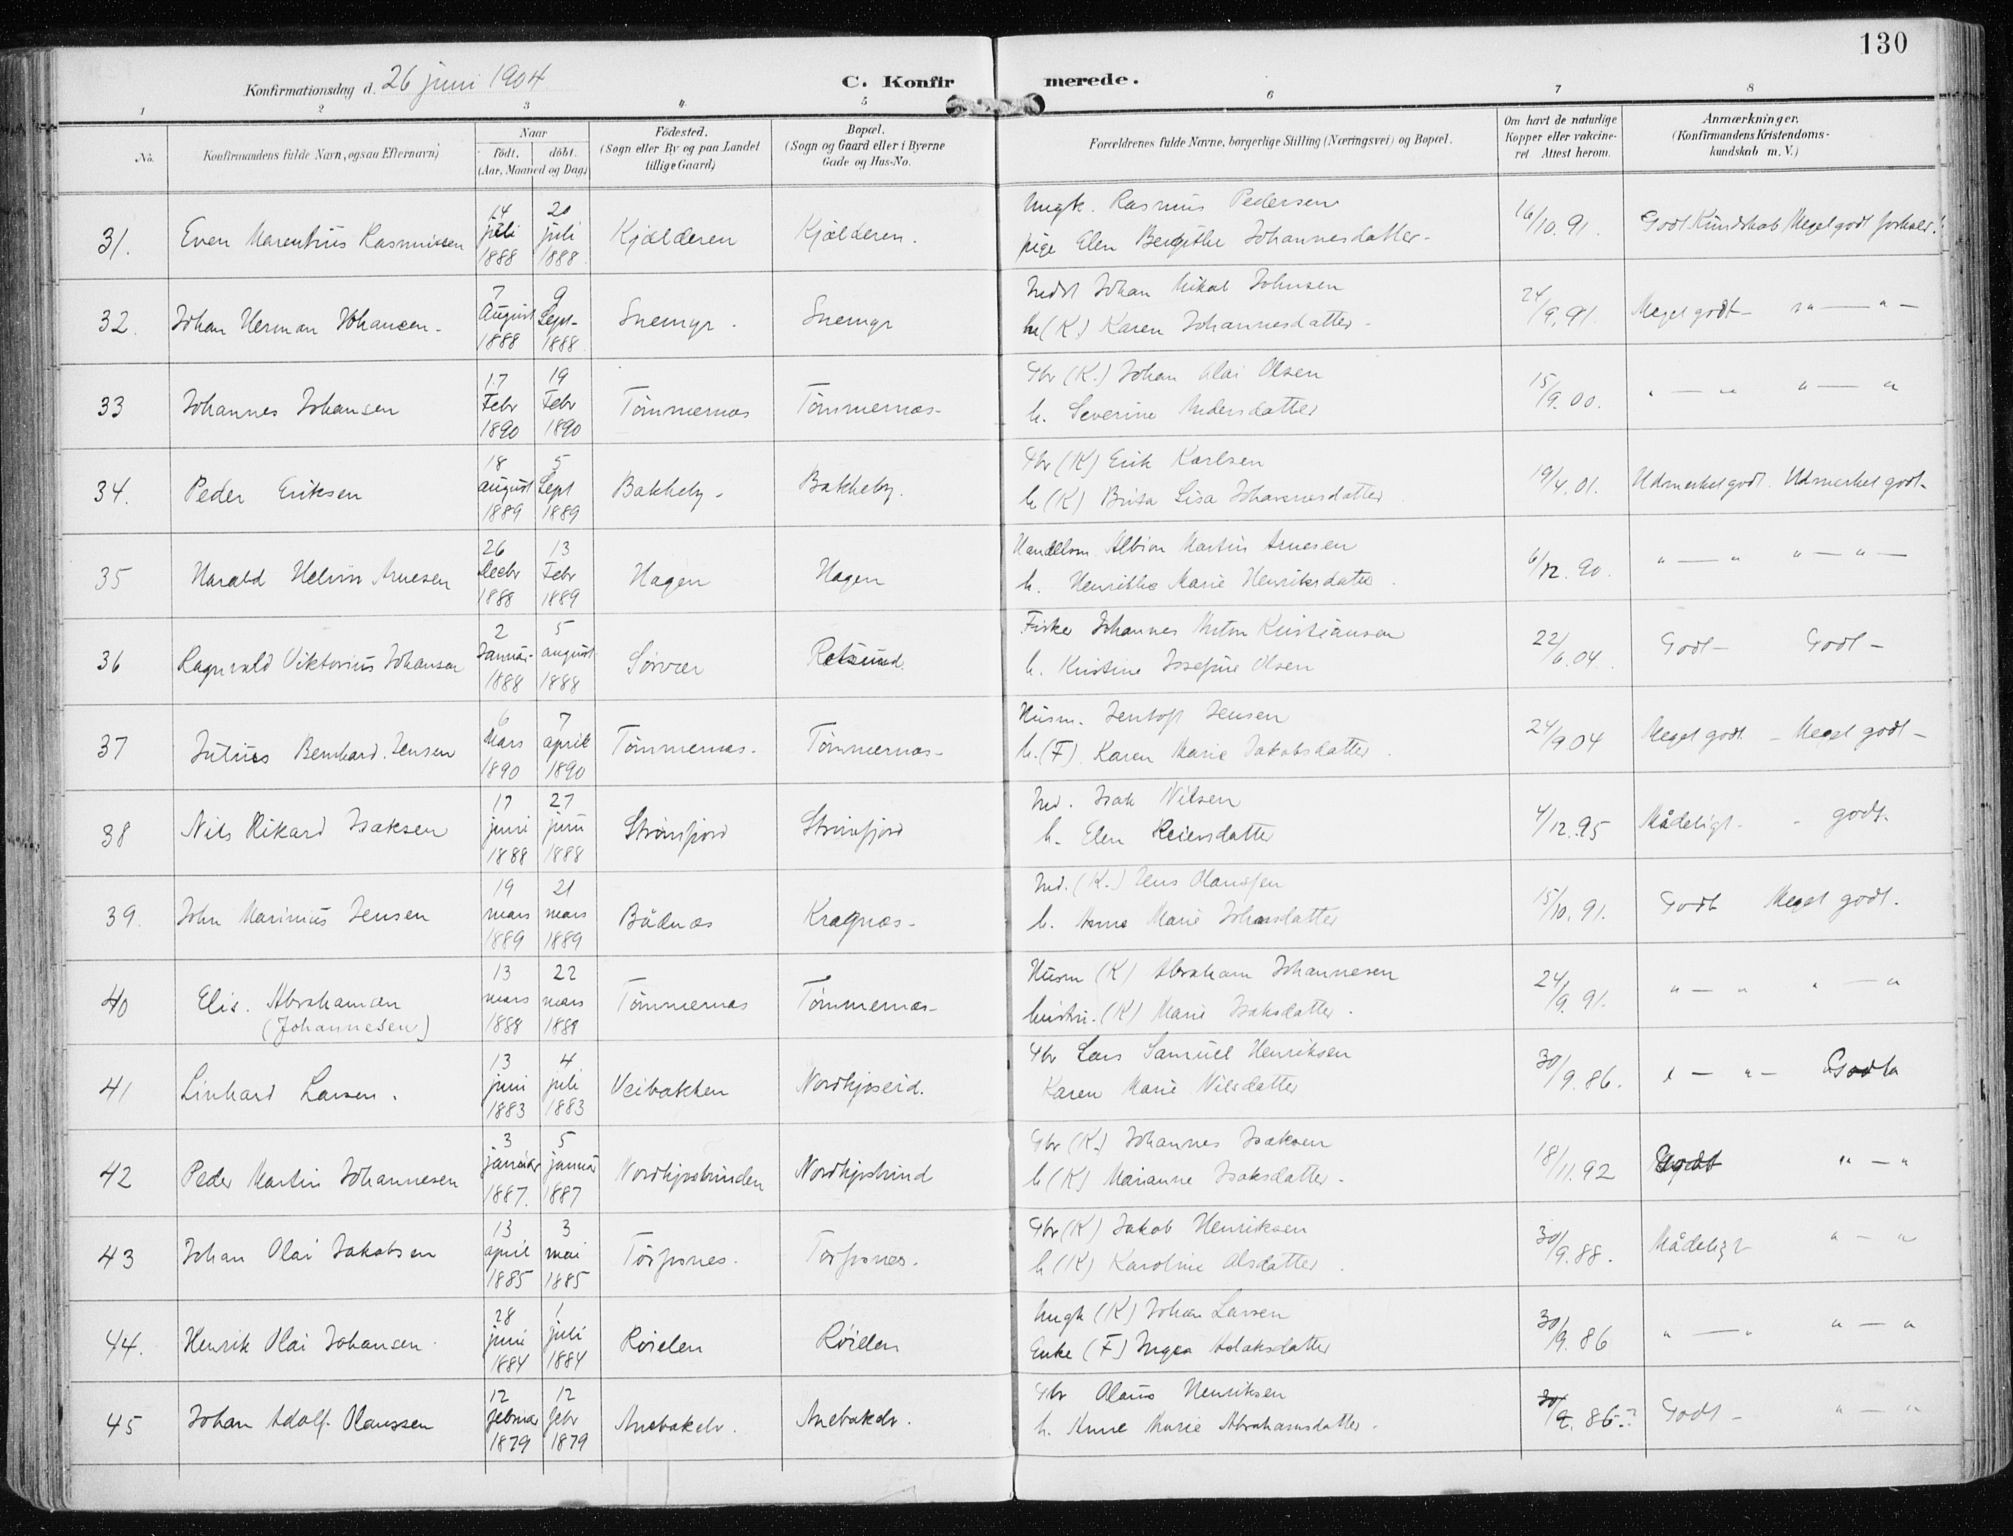 130
Konfirmationsdag d. 26 juni 1904
C. Konfirmerede.
1 2 3 4 5 6 7 8
No.
Konfirmandens fulde Navn, ogsaa Efternavn)
Naar
födt. döbt.
(Aar, Maaned og Dag)
Födested.
(Sogn eller By og paa Landet
tillige Gaard)
Bopæl.
(Sogn og Gaard eller i Byerne
Gade og Hus-No.
Forældrenes fulde Navne, borgerlige Stilling (Næringsvei) og Bopæl.
Om havt de naturlige
Kopper eller vakcine-
ret Attest herom.
Anmærkninger.
(Konfirmandens Kristendoms-
kundskab m. V.)
31. Even Marentius Rasmussen 14 juli 1888 20 juli 1888. Kjælderen Kjælderen.
Ungk. Rasmus Pedersen
pige Elen Bergithe Johannesdatter.
16/10.91. Godt Kundskab Meget godt forhold!
32. Johan Herman Johansen. 7 August 1888 9 Sept. 1888 Snemyr. Snemyr
Indst Johan Mikal Johnsen
h (K) Karen Johannesdatter.
24/9.91. Meget godt — " — " —
33 Johannes Johansen 17 Febr 1890 19 Febr 1890 Tømmernæs Tømmernæs.
Gbr (K.) Johan Olai Olsen
h. Severine Andersdatter
15/9.00. " — " " — "
34. Peder Eriksen 18 august 1889 5 Sept 1889 Bakkeby. Bakkeby.
Gbr (K) Erik Karlsen
h (K) Brita Lisa Johannesdatter.
19/4.01. Udmerket godt. Udmerket godt.
35 Harald Helvin Arnesen 26 Decbr 1888 13 Febr 1889 Hagen Hagen
Handelsm. Albion Martin Arnesen
h. Henrikke Marie Henriksdatter.
6/12.90. " — " " — " —
36 Ragnvald Viktorius Johansen 2 Januar 1888 5 august 1888 Sørvær Rotsund.
Fisker Johannes Anton Kristiansen
h. Kristine Josefine Olsen
22/6.04. Godt — Godt —
37 Julius Bernhard Jensen 6 Mars 1890 7 april 1890 Tømmernæs. Tømmernæs.
Husm. Jentoft Jensen
h. (F). Karen Marie Jakobsdatter.
24/9 04 Meget godt. — Meget godt —
38 Nils Rikard Isaksen 17 juni 1888 27 juni 1888 Strømfjord Strømfjord
Ind. Isak Nilsen
h. Elen Reiersdatter
4/12.95 Mådeligt. . godt.
39. John Marinius Jensen 19 mars 1889 21 mars 1889 Bådnæs Kragnæs.
Ind. (K.) Jens Olaussen
h. Anne Marie Johansdatter
15/10.91. Godt Meget godt.
40 Elis. Abrahamsen 13 mars 1888 22 mars 1888 Tømmernæs Tømmernæs.
(Johannesen)
Husm (K) Abraham Johannesen
hustru. (K) Marie Isaksdatter.
24/9.91. " — " " — "
41 Linhard Larsen. 13 juni 1883 4 juli 1883 Veibakken Nordkjoseid.
Gbr Lars Samuel Henriksen
Karen Marie Nilsdatter
30/9.86. " — " — Godt
42 Peder Martin Johannesen 3 januar 1887. 5 januar 1887 Nordkjosbunden Nordkjosbund
Gbr (K.) Johannes Isaksen
h (K) Marianne Isaksdatter.
18/11.92 " — "
43 Johan Olai Jakobsen 13 april 1885 3 mai 1885
Gbr (K) Jakob Henriksen
h (K) Karoline Olsdatter.
30/9.88. Mådeligt " — "
44. Henrik Olai Johansen. 28 juni 1884 1 juli 1884 Røielen Røielen
Ungk (K) Johan Larsen
Enke (F) Inga Aslaksdatter
30/9.86 " — " " — "
45 Johan Adolf Olaussen 12 februar 1879 12 febr 1879
Gbr Olaus Henriksen
h. Anne Marie Abrahamsdatter.
30/9.86.? Godt — " — "